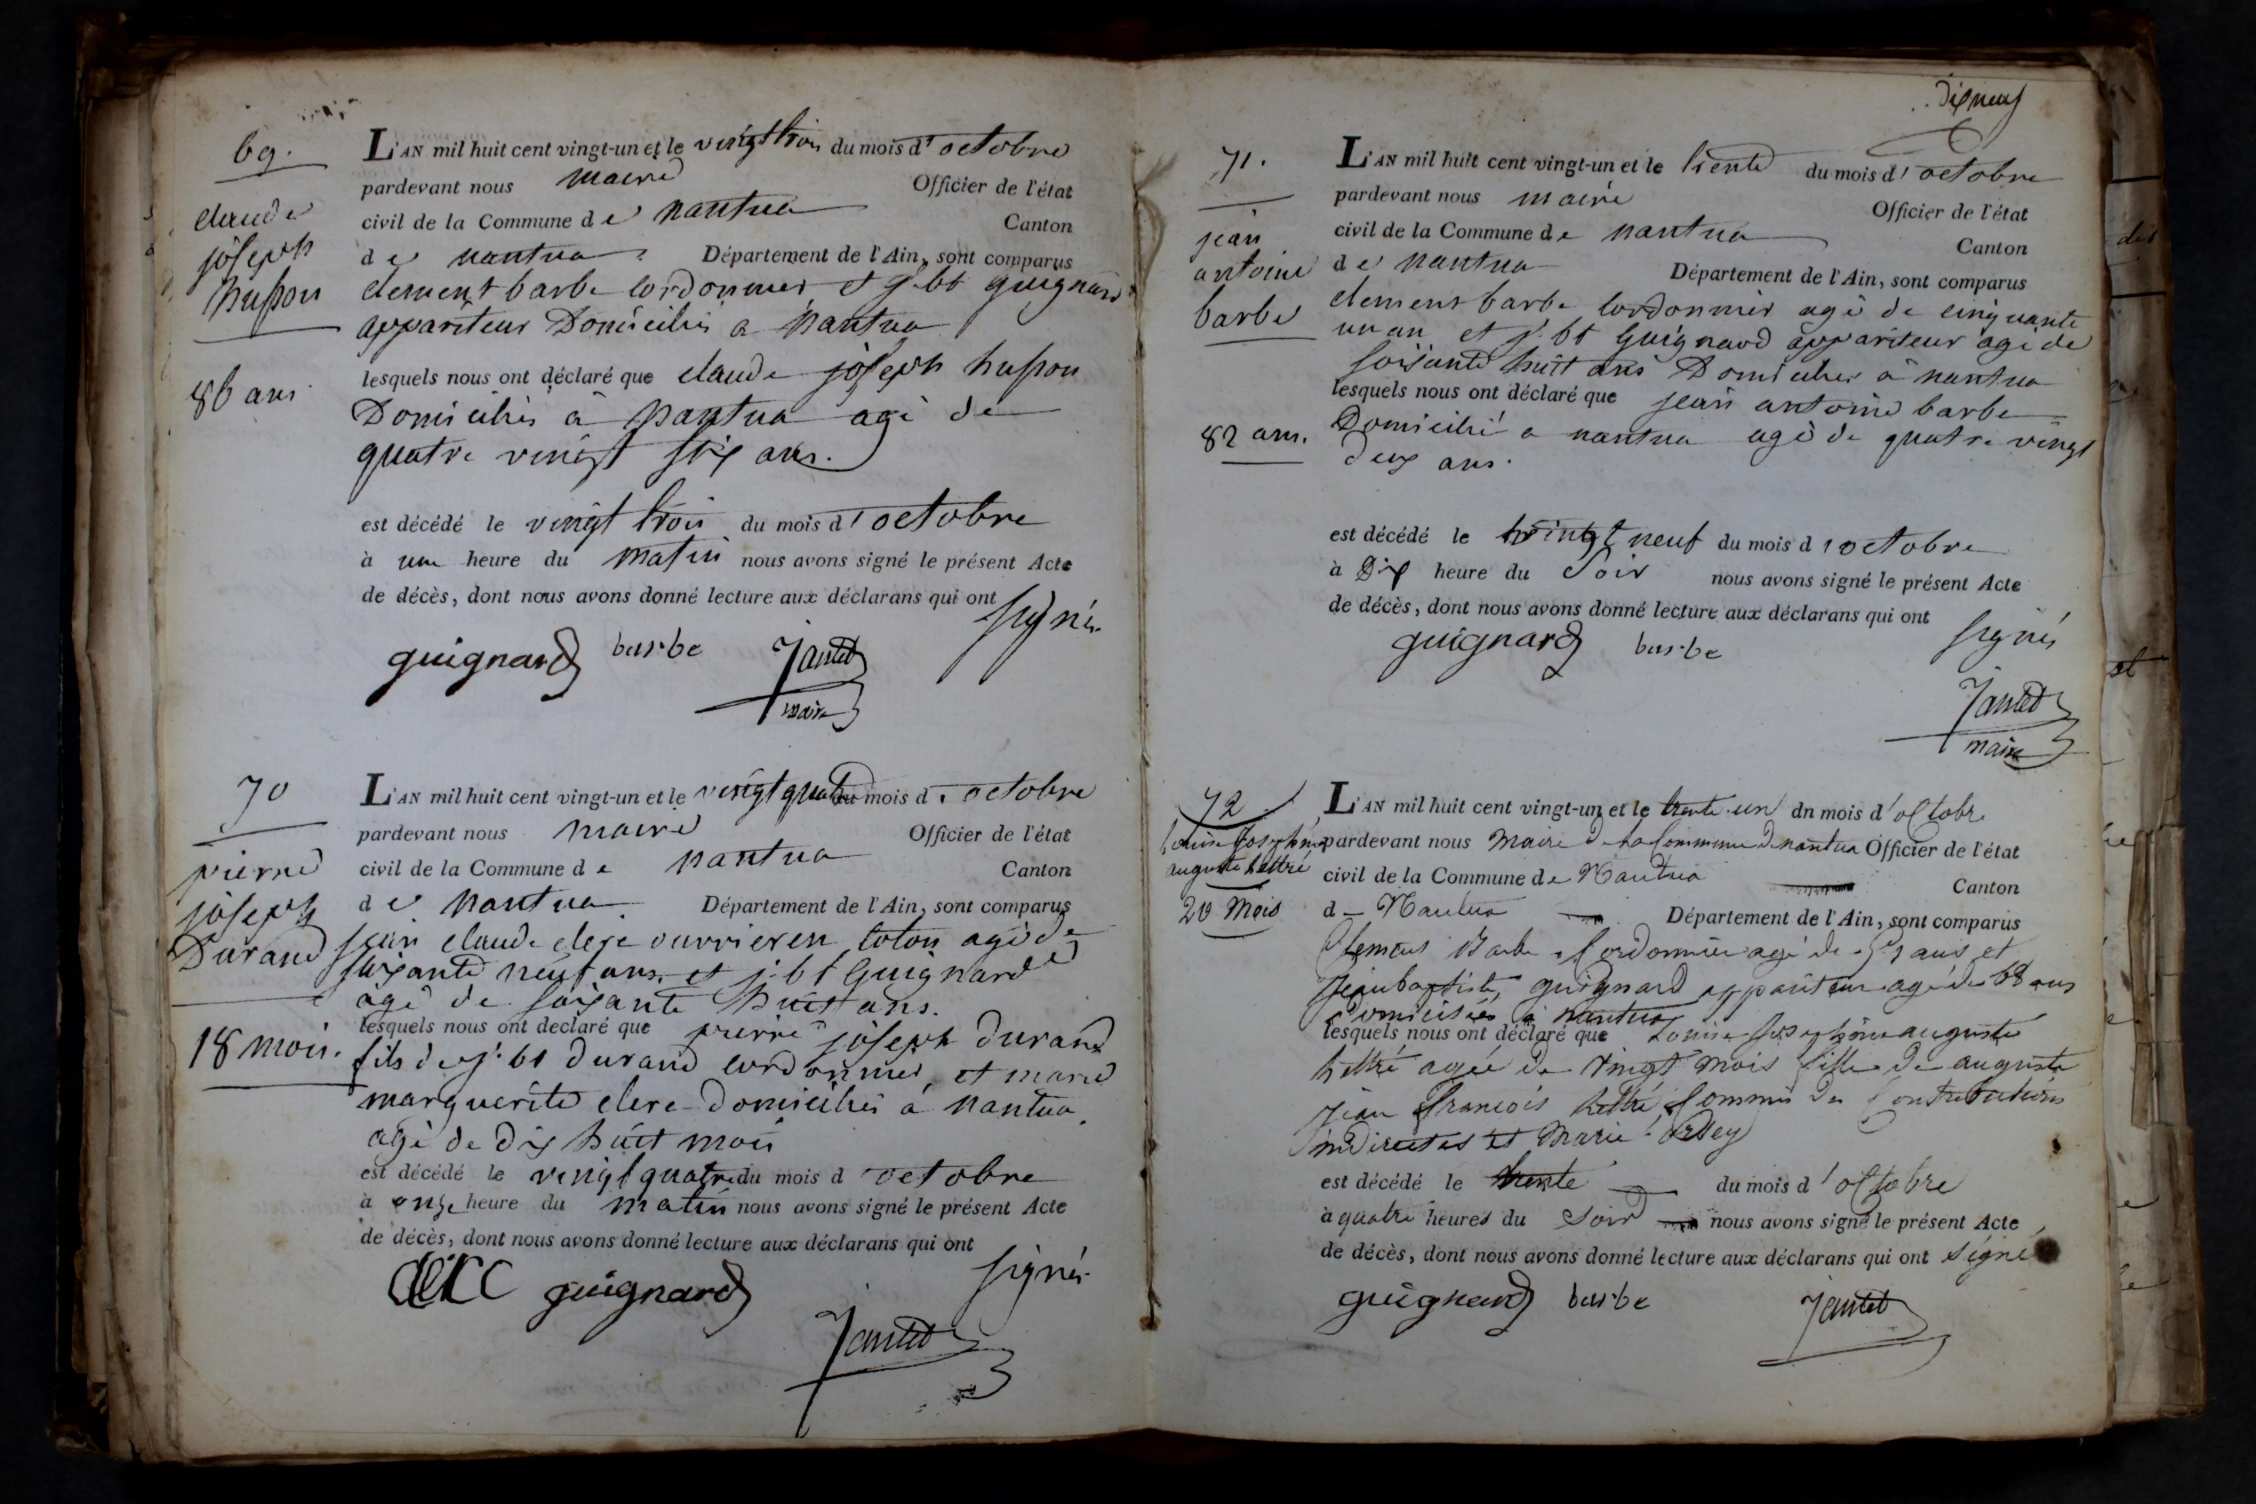 69.
claude
joseph
husson
86 ans
L'AN mil huit cent vingt-un et le vingt trois du mois d'octobre
pardevant nous maire Officier de l'état
civil de la Commune de nantua Canton
de nantua Département de l'Ain, sont comparus
clement barbe cordonnier et j. bt guignard
appariteur Domiciliés a nantua
lesquels nous ont déclaré que claude joseph husson
Domicilié à nantua agé de
quatre vingt six ans.
est décédé le vingt trois du mois d'octobre
à une heure du matin nous avons signé le présent Acte
de décès, dont nous avons donné lecture aux déclarans qui ont
signés
guignard barbe Jantet
maire
70
pierre
joseph
Durand
18 mois.
L'AN mil huit cent vingt-un et le vingt quatre du mois d'octobre
pardevant nous maire Officier de l'état
civil de la Commune de nantua Canton
de nantua Département de l'Ain, sont comparus
jean claude clerc ouvrier en coton agé de
soixante neuf ans et j. bt Guignard
agé de soixante huit ans.
lesquels nous ont declaré que pierre joseph Durand
fils de j. bt Durand cordonnier, et marie
marguerite clerc domiciliés à nantua.
agé de dix huit mois
est décédé le vingt quatre du mois d'octobre
à onze heure du matin nous avons signé le présent Acte
de décès, dont nous avons donné lecture aux déclarans qui ont
signés
clerc guignard
Jantet
dix neuf
71.
jean
antoine
barbe
82 ans.
L'AN mil huit cent vingt-un et le trente du mois d'octobre
pardevant nous maire Officier de l'état
civil de la Commune de nantua Canton
de nantua Département de l'Ain, sont comparus
clement barbe cordonnier agé de cinquante
un an et j. bt Guignard appariteur agé de
soixante huit ans Domiciliés à nantua
lesquels nous ont déclaré que jean antoine barbe
Domicilié a nantua agé de quatre vingt
deux ans.
est décédé le vingt neuf du mois d'octobre
à Dix heure du Soir nous avons signé le présent Acte
de décès, dont nous avons donné lecture aux déclarans qui ont
signés
guignard barbe
Jantet
maire
72
Louise Josephine
auguste hettré
20 Mois
L'AN mil huit cent vingt-un et le trente un dn mois d'octobre
pardevant nous Maire de la Commune de nantua Officier de l'état
civil de la Commune de Nantua Canton
de Nantua Département de l'Ain, sont comparus
Clement Barbe Cordonnier agé de 51 ans et
Jean baptiste guignard appariteur agé de 68 ans
Domiciliés à nantua
lesquels nous ont déclaré que Louise Josephine auguste
hettré agée de vingt mois fille de auguste
jean françois hettré Commis des Contributions
indirectes et Marie
est décédé le trente du mois d'octobre
à quatre heures du Soir nous avons signé le présent Acte
de décès, dont nous avons donné lecture aux déclarans qui ont signé
guignard barbe Jantet